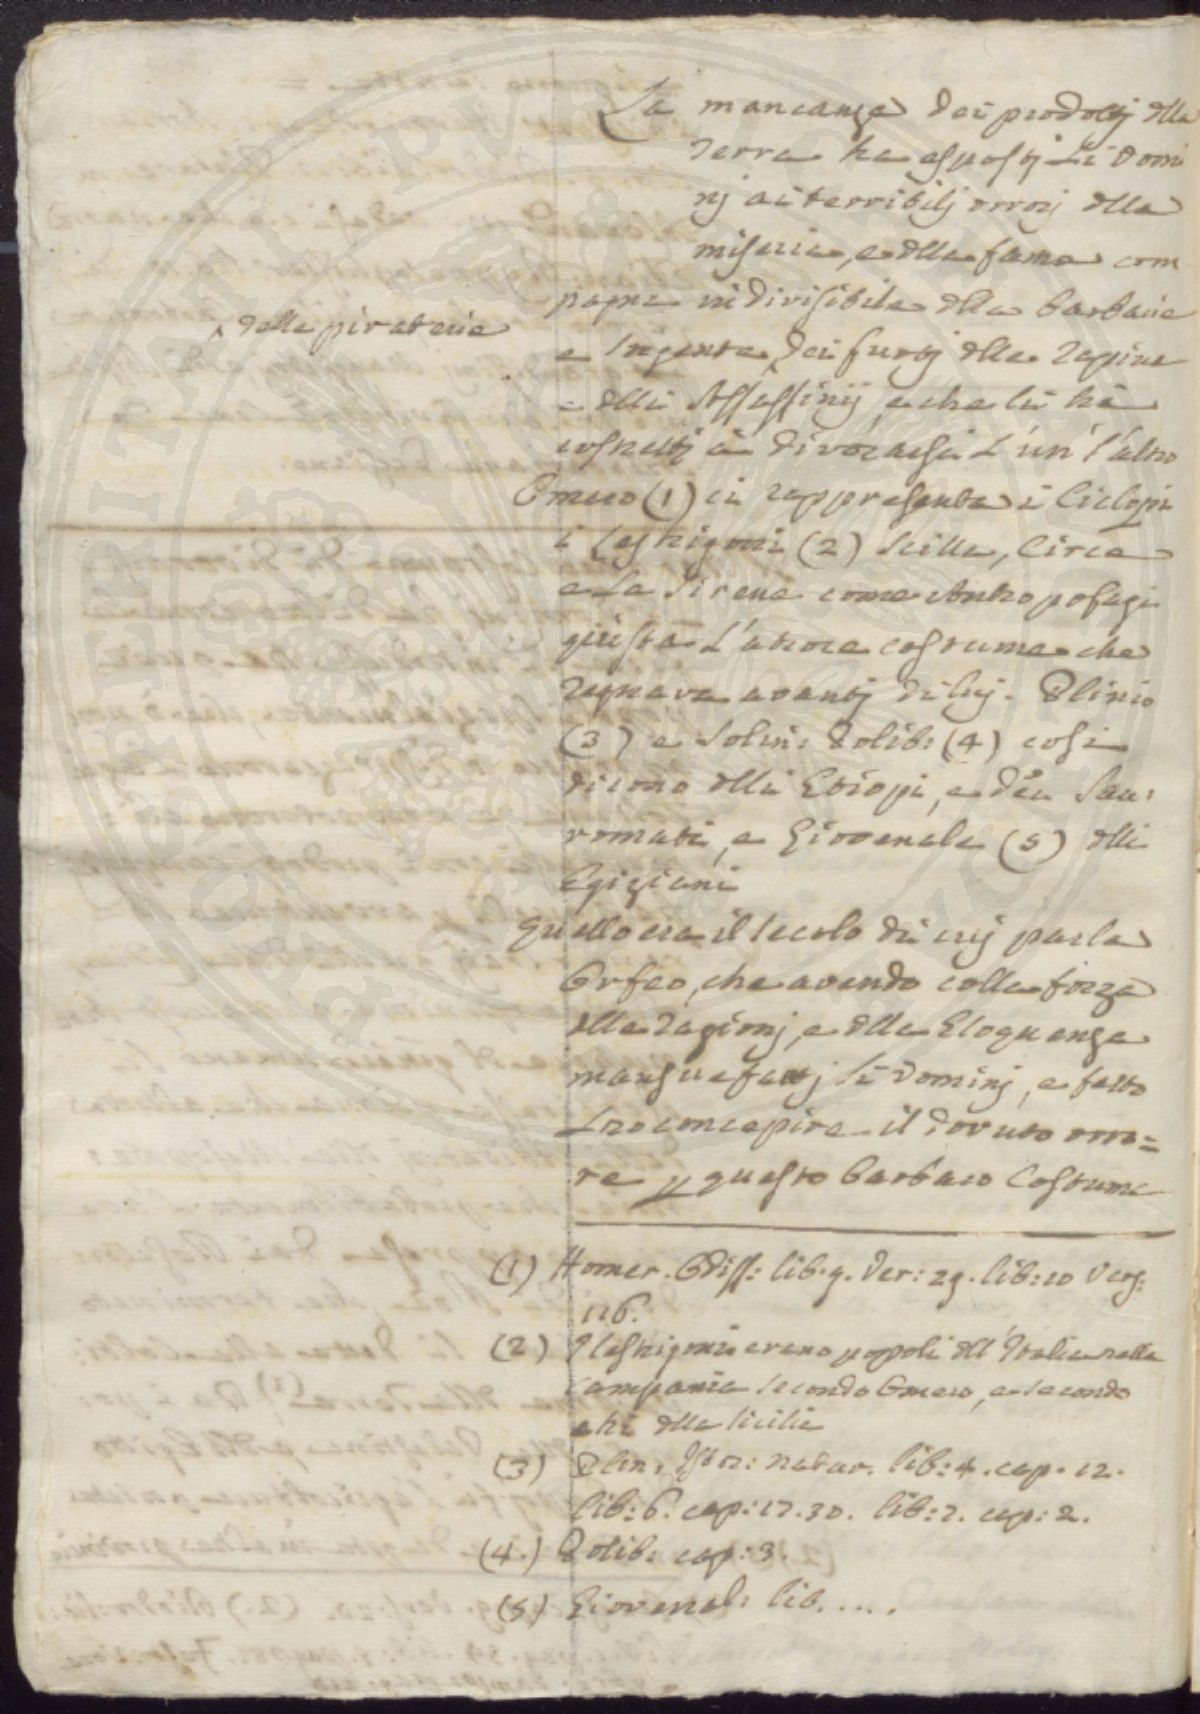 La mancanza dei prodotti dlla
Terra ha esposti Li Vomi
nj ai terribilj orrori dlla
miseria, e dlla fame com
pagne indivisibile dlla barbarie
^ delle piraterie
e sorgente dei furtj dlle rapine
e dlli Assassinij, e che li hà
costretti à divorarsi L'un' l'altro
Omero (1) ci rappresenta i Ciclopi
i Lestrigoni (2) Scilla, Circe
e Le Sirene come Antropofagi
giusta L'atroce costume che
regnava avantj di luj. Plinio
(3) e Solin: Polib: (4) così
dicono dlli Etiopi, e dei Sau:
romati, e Giovenale (5) dlli
Egiziani
Quello era il secolo di cuj parla
Orfeo, che avendo colla forza
dlla ragionj, e dlla Eloquenza
mansuefattj li Vominj, e fatto
Loro concepire il dovuto orro=
re p questo barbaro Costume
(1) Homer. Odiss: lib. 9. Ver: 29. lib: 10 Vers:
116.
(2) I Lestrigoni erano popoli dll'Italia nella
Campania secondo Omero, e secondo
altri dlla Sicilia
(3) Plin. Istor: natur. lib: 4. cap. 12.
lib: 6. cap: 17. 30. lib: 7. cap: 2.
(4.) Polib: cap: 3.
(5) Giovenal: lib. ....